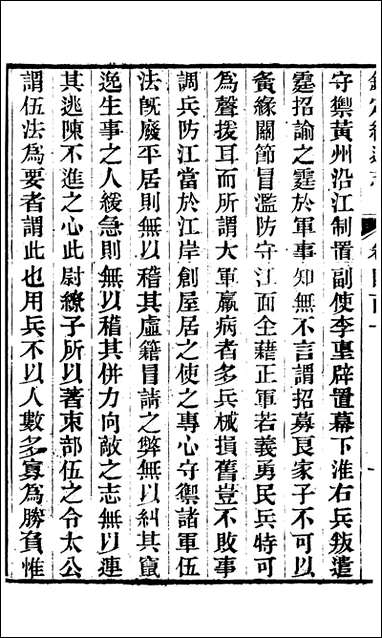 欽定續通志　卷四百十
守禦黃州沿江制置副使李壴辟置幕下淮右兵叛遣
霆招諭之霆於軍事知無不言謂招募良家子不可以
夤緣關節冒濫防守江面全藉正軍若義勇民兵特可
為聲援耳而所謂大軍羸病者多兵械損舊豈不敗事
調兵防江當於江岸創屋居之使之專心守禦諸軍伍
法旣廢平居則無以稽其虛籍冒請之弊無以糾其竄
逸生事之人緩急則無以稽其併力向敵之志無以連
其逃陳不進之心此尉繚子所以著束部伍之令太公
謂伍法為要者謂此也用兵不以人數多寡為勝負惟